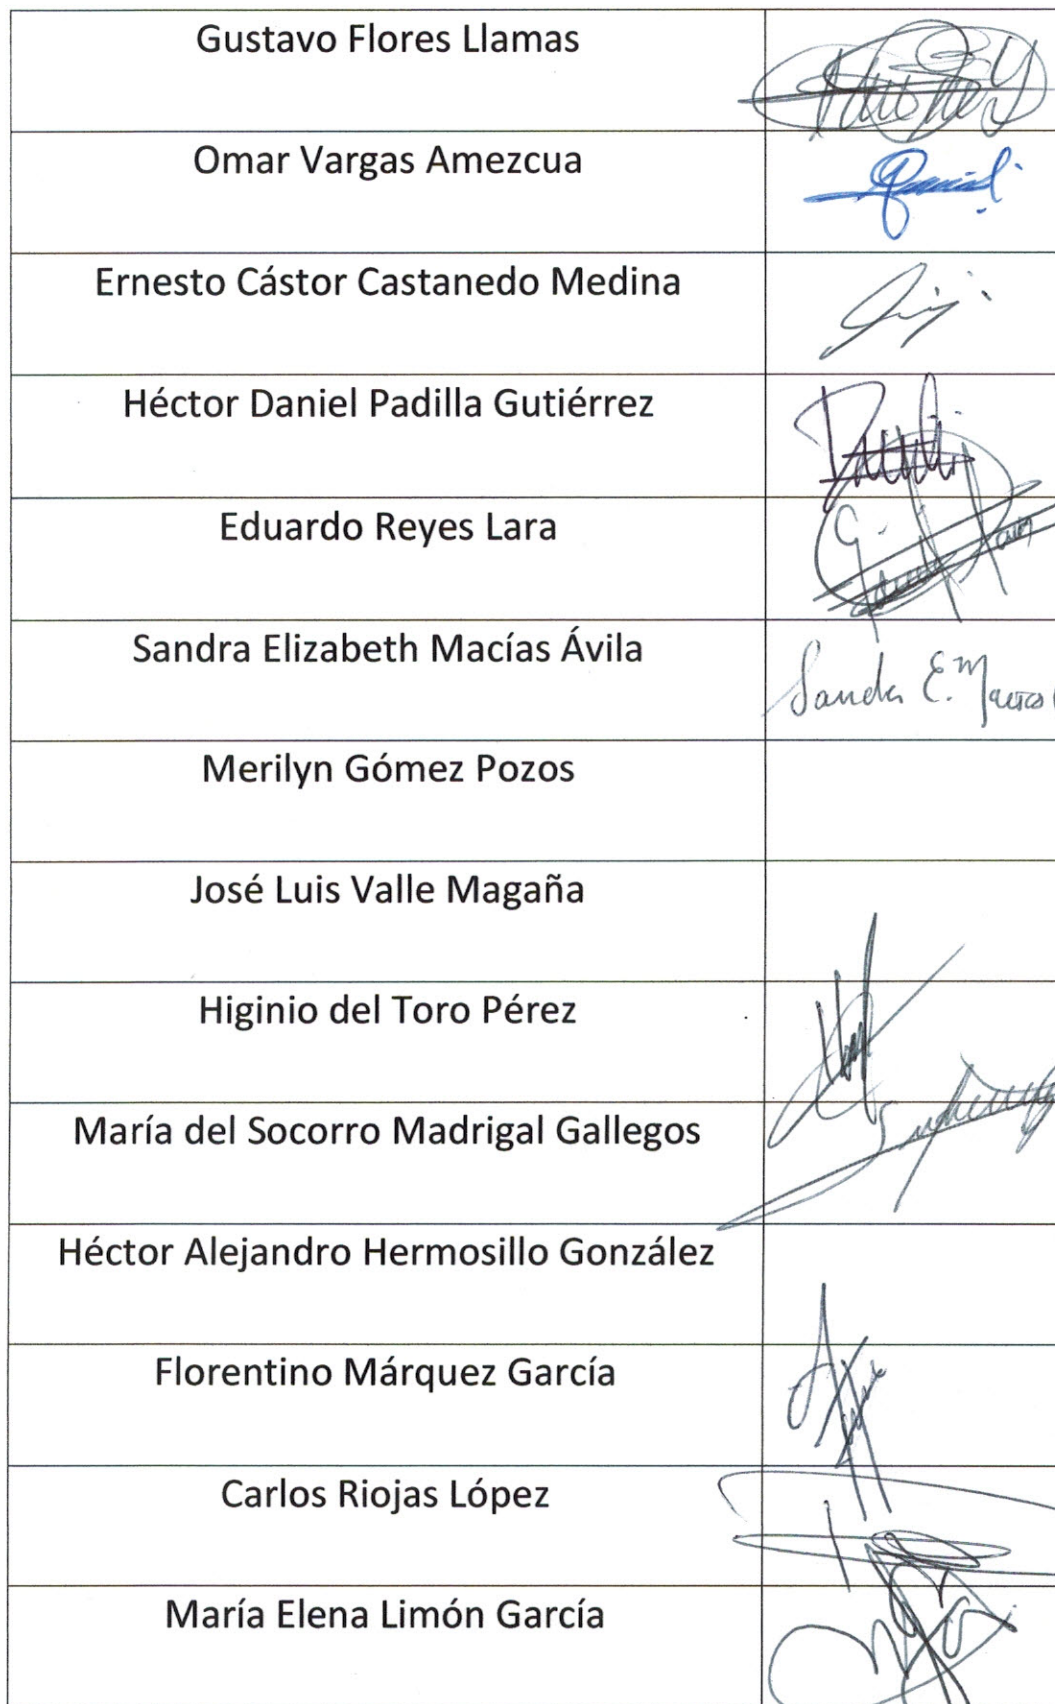 Gustavo Flores Llamas
Omar Vargas Amezcua
Ernesto Cástor Castanedo Medina
Héctor Daniel Padilla Gutiérrez
Eduardo Reyes Lara
Sandra Elizabeth Macías Ávila
Sandra E. Macías
Merilyn Gómez Pozos
José Luis Valle Magaña
Higinio del Toro Pérez
María del Socorro Madrigal Gallegos
Héctor Alejandro Hermosillo González
Florentino Márquez García
Carlos Riojas López
María Elena Limón García